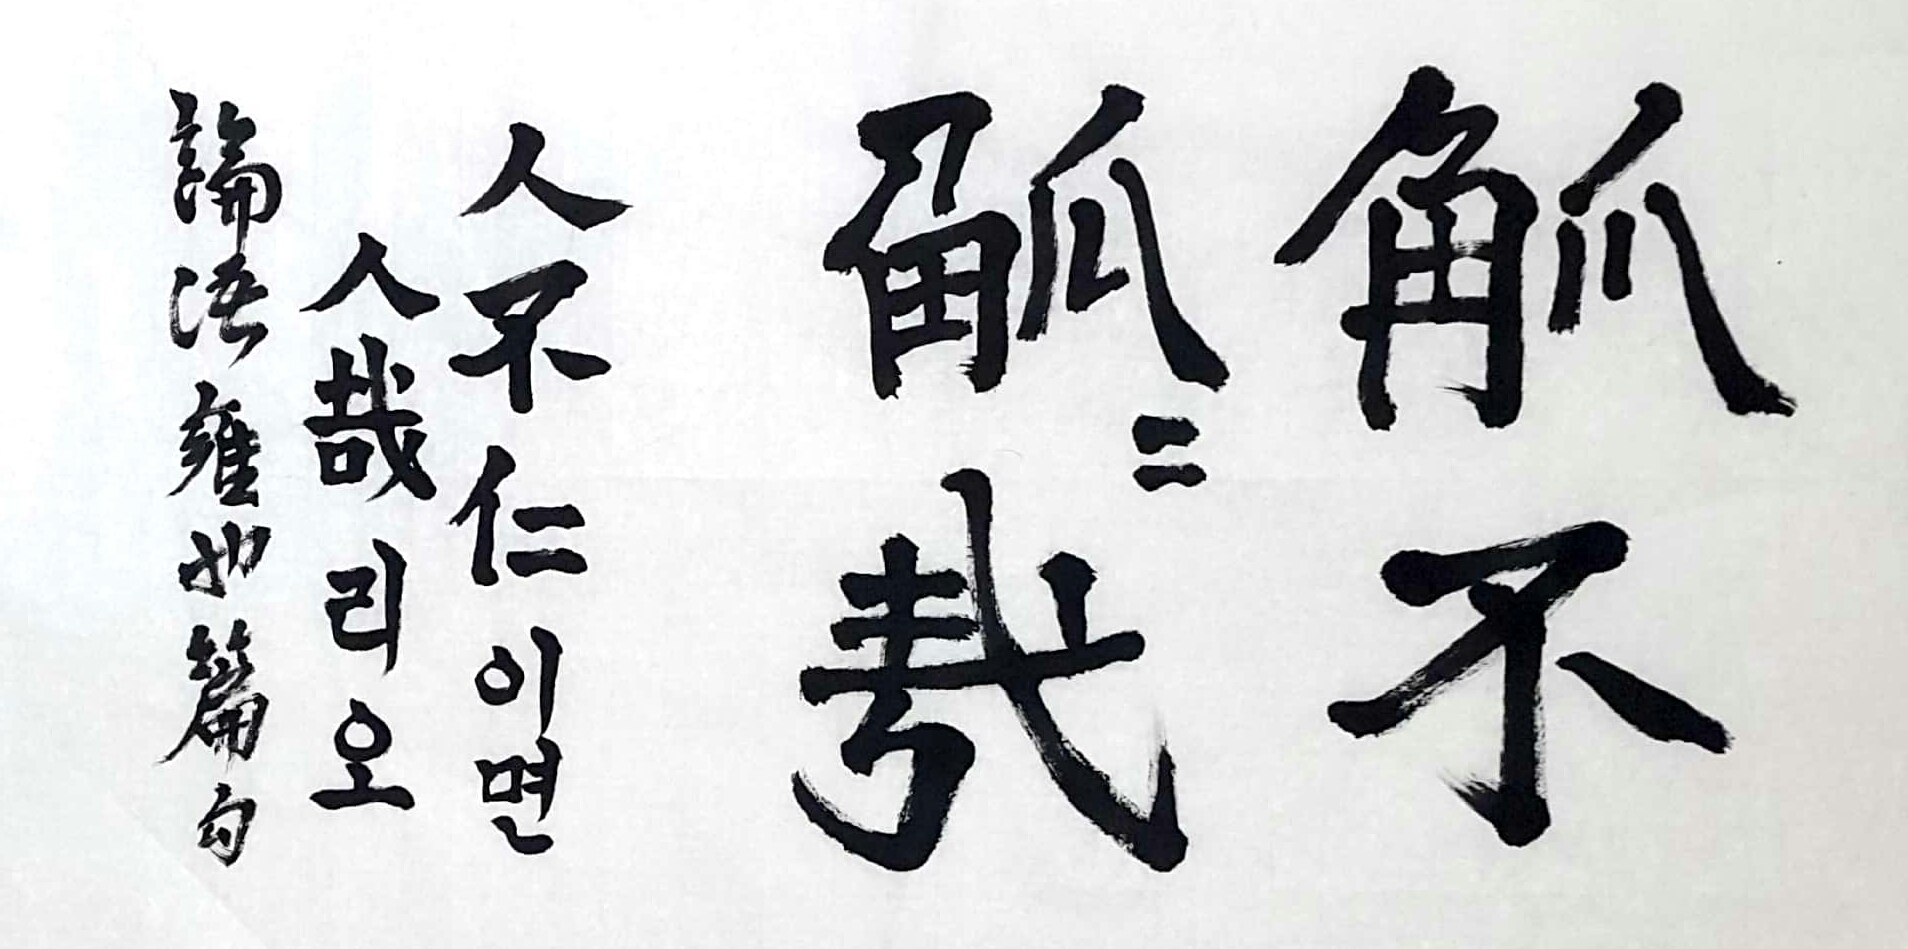 觚不
觚〻哉
人不仁이면
人哉리오
論語雍也篇句